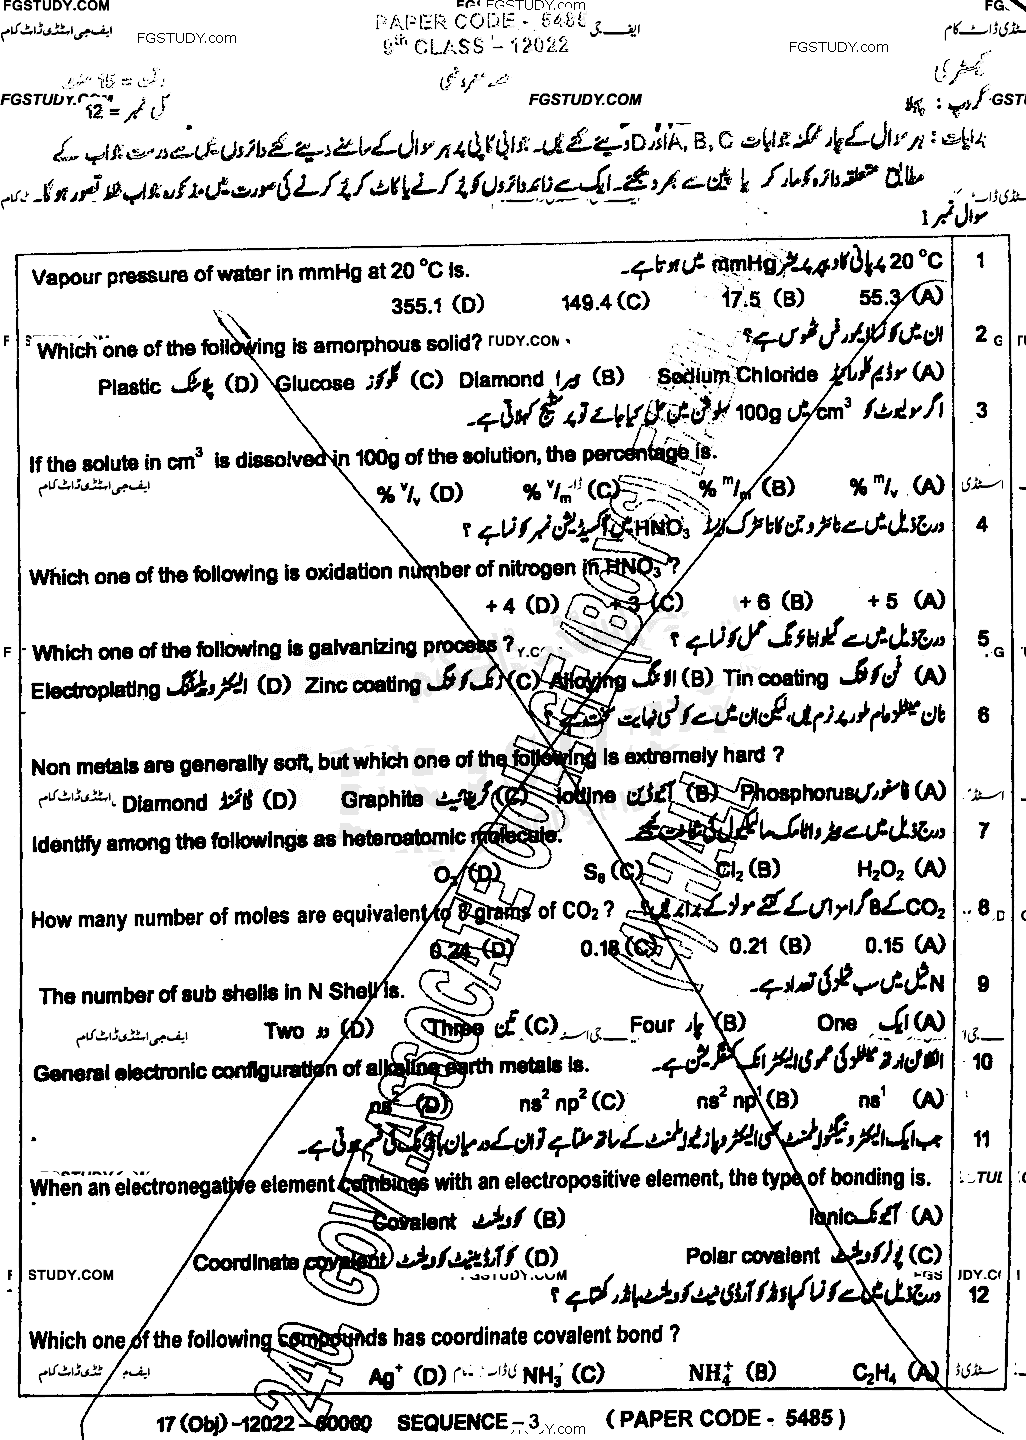 FGSTUDY.COM FGSTUDY.COM
ایف جی اسٹڈی ڈاٹ کام FGSTUDY.com PAPER CODE - 5485 ایف جی سٹڈی ڈاٹ کام
9th CLASS - 12022 FGSTUDY.com
کیمسٹری
FGSTUDY.COM FGSTUDY.COM گروپ : پہلا
کل نمبر = 12
ہدایات : ہر سوال کے چار ممکنہ جوابات A, B, C اور D دیئے گئے ہیں۔ جوابی کاپی پر ہر سوال کے سامنے دیئے گئے دائروں میں سے درست جواب کے
مطابق متعلقہ دائرہ کو مارکر یا پین سے بھر دیجئے۔ ایک سے زائد دائروں کو پُر کرنے یا کاٹ کر پُر کرنے کی صورت میں مذکورہ جواب غلط تصور ہو گا۔
سوال نمبر 1
1 20 °C پر پانی کا ویپر پریشر mmHg میں ہوتا ہے۔
Vapour pressure of water in mmHg at 20 °C is.
55.3 (A) 17.5 (B) 149.4 (C) 355.1 (D)
2 ان میں کونسا ایمورفس ٹھوس ہے؟
Which one of the following is amorphous solid?
(A) سوڈیم کلورائیڈ Sodium Chloride (B) ہیرا Diamond (C) گلوکوز Glucose (D) پلاسٹک Plastic
3 اگر سولیوٹ کو cm³ میں 100g سلوشن میں حل کیا جائے تو پرسنٹیج کہلاتی ہے۔
If the solute in cm³ is dissolved in 100g of the solution, the percentage is.
% m/v (A) % m/m (B) % v/m (C) % v/v (D)
4 درج ذیل میں سے نائٹروجن کا نائٹرک ایسڈ HNO₃ میں آکسیڈیشن نمبر کونسا ہے ؟
Which one of the following is oxidation number of nitrogen in HNO₃ ?
+ 5 (A) + 6 (B) + 3 (C) + 4 (D)
5 درج ذیل میں سے گیلوانائزنگ عمل کونسا ہے ؟
Which one of the following is galvanizing process ?
(A) ٹن کوٹنگ Tin coating (B) الائنگ Alloying (C) زنک کوٹنگ Zinc coating (D) الیکٹروپلیٹنگ Electroplating
6 نان میٹلز عام طور پر نرم ہیں، لیکن ان میں سے کونسی نہایت سخت ہے ؟
Non metals are generally soft, but which one of the following is extremely hard ?
(A) فاسفورس Phosphorus (B) آیوڈین Iodine (C) گریفائیٹ Graphite (D) ڈائمنڈ Diamond
7 درج ذیل میں سے ہیٹرواٹامک مالیکیول کی شناخت کیجئے
Identify among the followings as heteroatomic molecule.
H₂O₂ (A) Cl₂ (B) S₈ (C) O₃ (D)
8 CO₂ کے 8 گرامز اس کے کتنے مولز کے برابر ہیں؟
How many number of moles are equivalent to 8 grams of CO₂ ?
0.15 (A) 0.21 (B) 0.18 (C) 0.24 (D)
9 N شیل میں سب شیلز کی تعداد ہے۔
The number of sub shells in N Shell is.
(A) ایک One (B) چار Four (C) تین Three (D) دو Two
10 الکلائن ارتھ میٹلز کی عمومی الیکٹرانک کنفگریشن ہے۔
General electronic configuration of alkaline earth metals is.
ns¹ (A) ns² np¹ (B) ns² np² (C) ns² (D)
11 جب ایک الیکٹرونیگیٹو ایلیمنٹ کسی الیکٹروپازیٹو ایلیمنٹ کے ساتھ ملتا ہے تو ان کے درمیان بانڈنگ کی قسم ہوتی ہے۔
When an electronegative element combines with an electropositive element, the type of bonding is.
(A) آئیونک Ionic (B) کوویلنٹ Covalent
(C) پولر کوویلنٹ Polar covalent (D) کوآرڈینیٹ کوویلنٹ Coordinate covalent
STUDY.COM FGSTUDY.COM
12 درج ذیل میں سے کونسا کمپاؤنڈ کوآرڈی نیٹ کوویلنٹ بانڈ رکھتا ہے ؟
Which one of the following compounds has coordinate covalent bond ?
C₂H₄ (A) NH₄⁺ (B) NH₃ (C) Ag⁺ (D)
17 (Obj) -12022 - 60000 SEQUENCE - 3 ( PAPER CODE - 5485 )